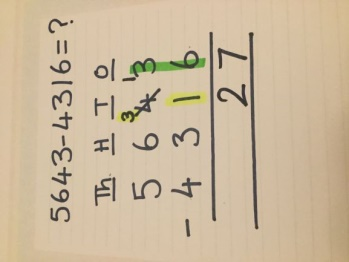 5643-4316=?
Th H T O
5 6 3 4 1 3
- 4 3 1 6
2 7